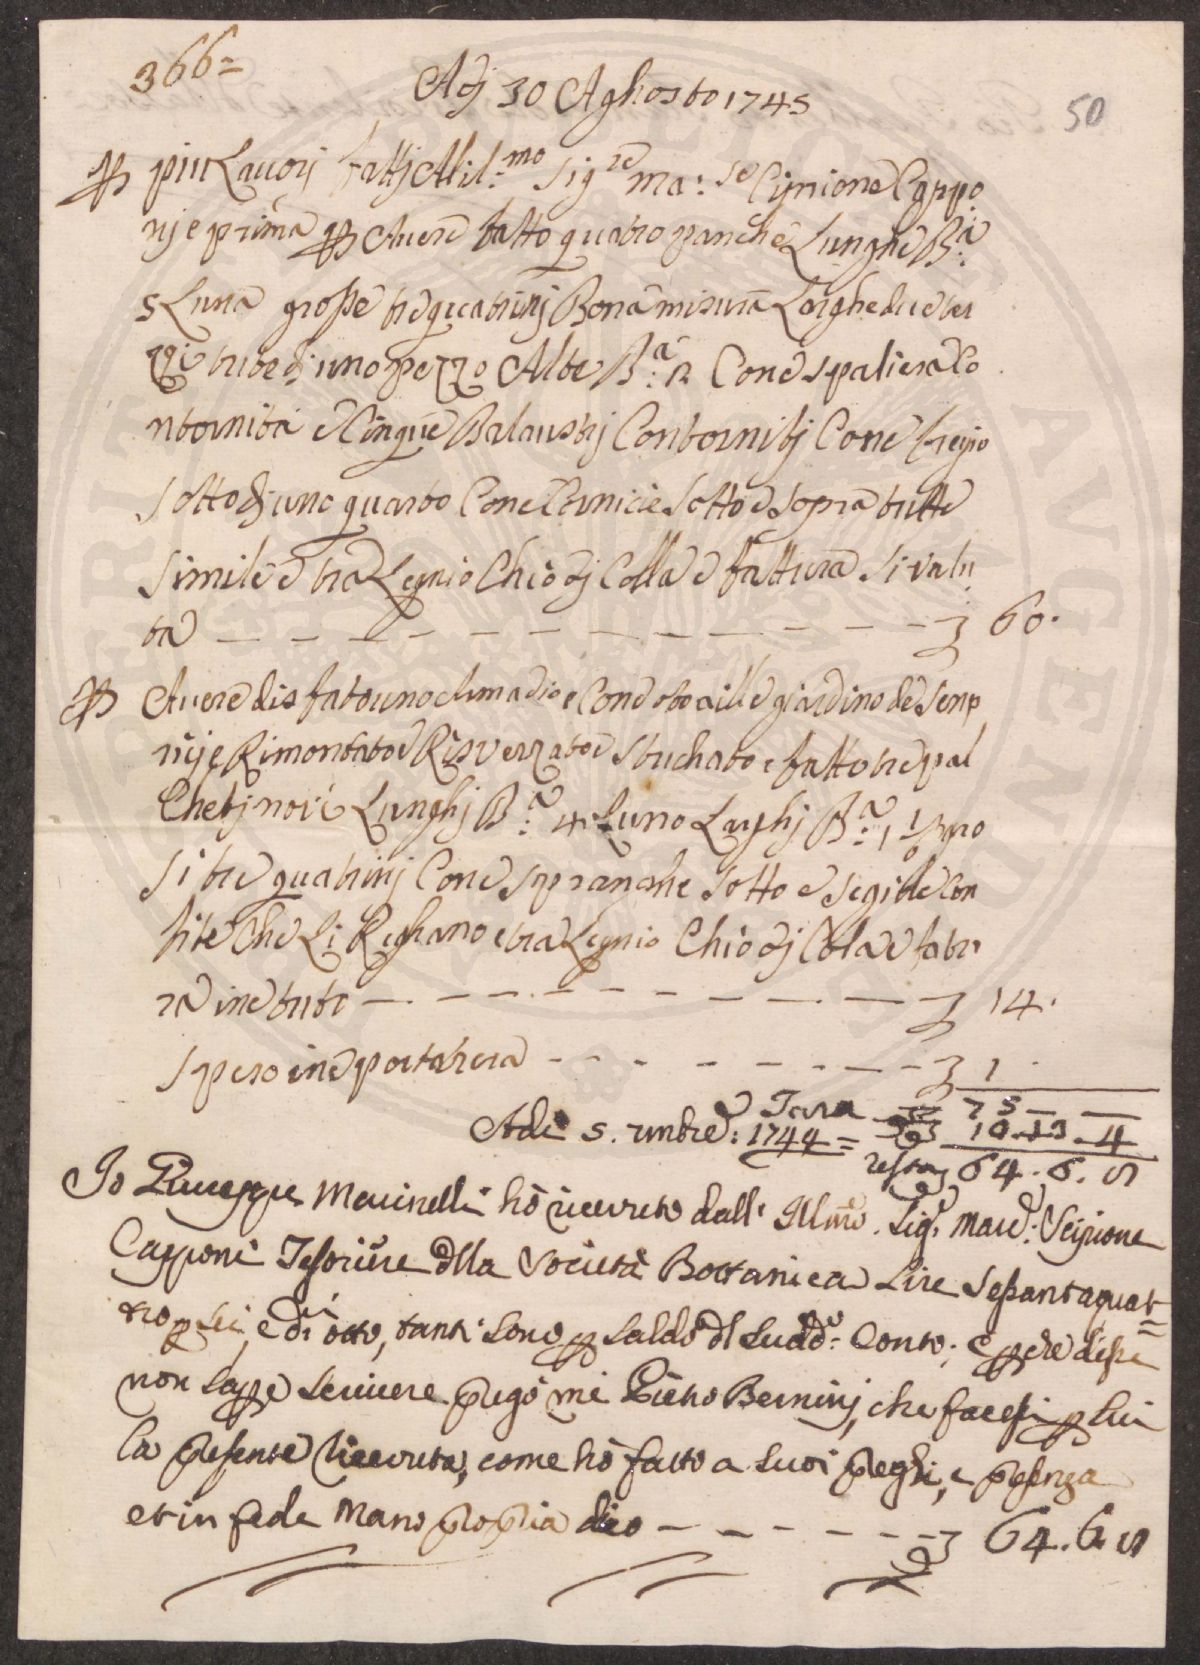 366=
Adj 30 Aghosto 1745
50
Per piu Lavorj fattj All il:mo Sigre ma: se Cipione Cappo
nj e prima per Avere fatto quatro panche Lunghe B:a
5 Luna grosse tre quatrinj Bona misura Larghe due ter
zi tute dj uno pezzo Alte B:a 12 Cone spaliera Co
ntornita e Cinque Balaustrj Contornitj Cone fregio
Sotto dj uno quarto Cone Cornicie Sotto e Sopra tutte
Simile e tra Legnio Chiodj Colla e fattura Si valu
ta — — — — — — — — — — — 60.
Per Avere disfato uno armadio e Condoto aille giardino de Senp
nicj e Rimontato e Risverzato e stuchato e fatto tre pal
Chetj novi Lunghj B:a 4 Luno Larghj B:a 1 1/3 gro
si tre quatrinj Cone Spranghe Sotto e Segitole Con
fite Che Li Reghano e tra Legnio Chiodj Cola e fatu
ra ine tuto — — — — — — — — 14.
Speso ine portatura — — — — — — 1.
75 — —
Tara 10.13.4
Adi 5. xmbre: 1744 = resta 64.6.8
Io Giuseppe Marinelli hò riceuto dall' Illmo. Sigr. Marc: Scipione
Capponi Tesoriere dlla Società Bottanica Lire Sessantaquat=
tro, Sei, e di otto, tanti sono per saldo dl Sudd: Conto; e per che disse
non Sapere Scrivere pregò me Pietro Berninj, che facessi per lui
la presente riceuta, come hò fatto a Suoi preghi, e presenza
et in fede Mano propria dico — — — — — 64.6.8